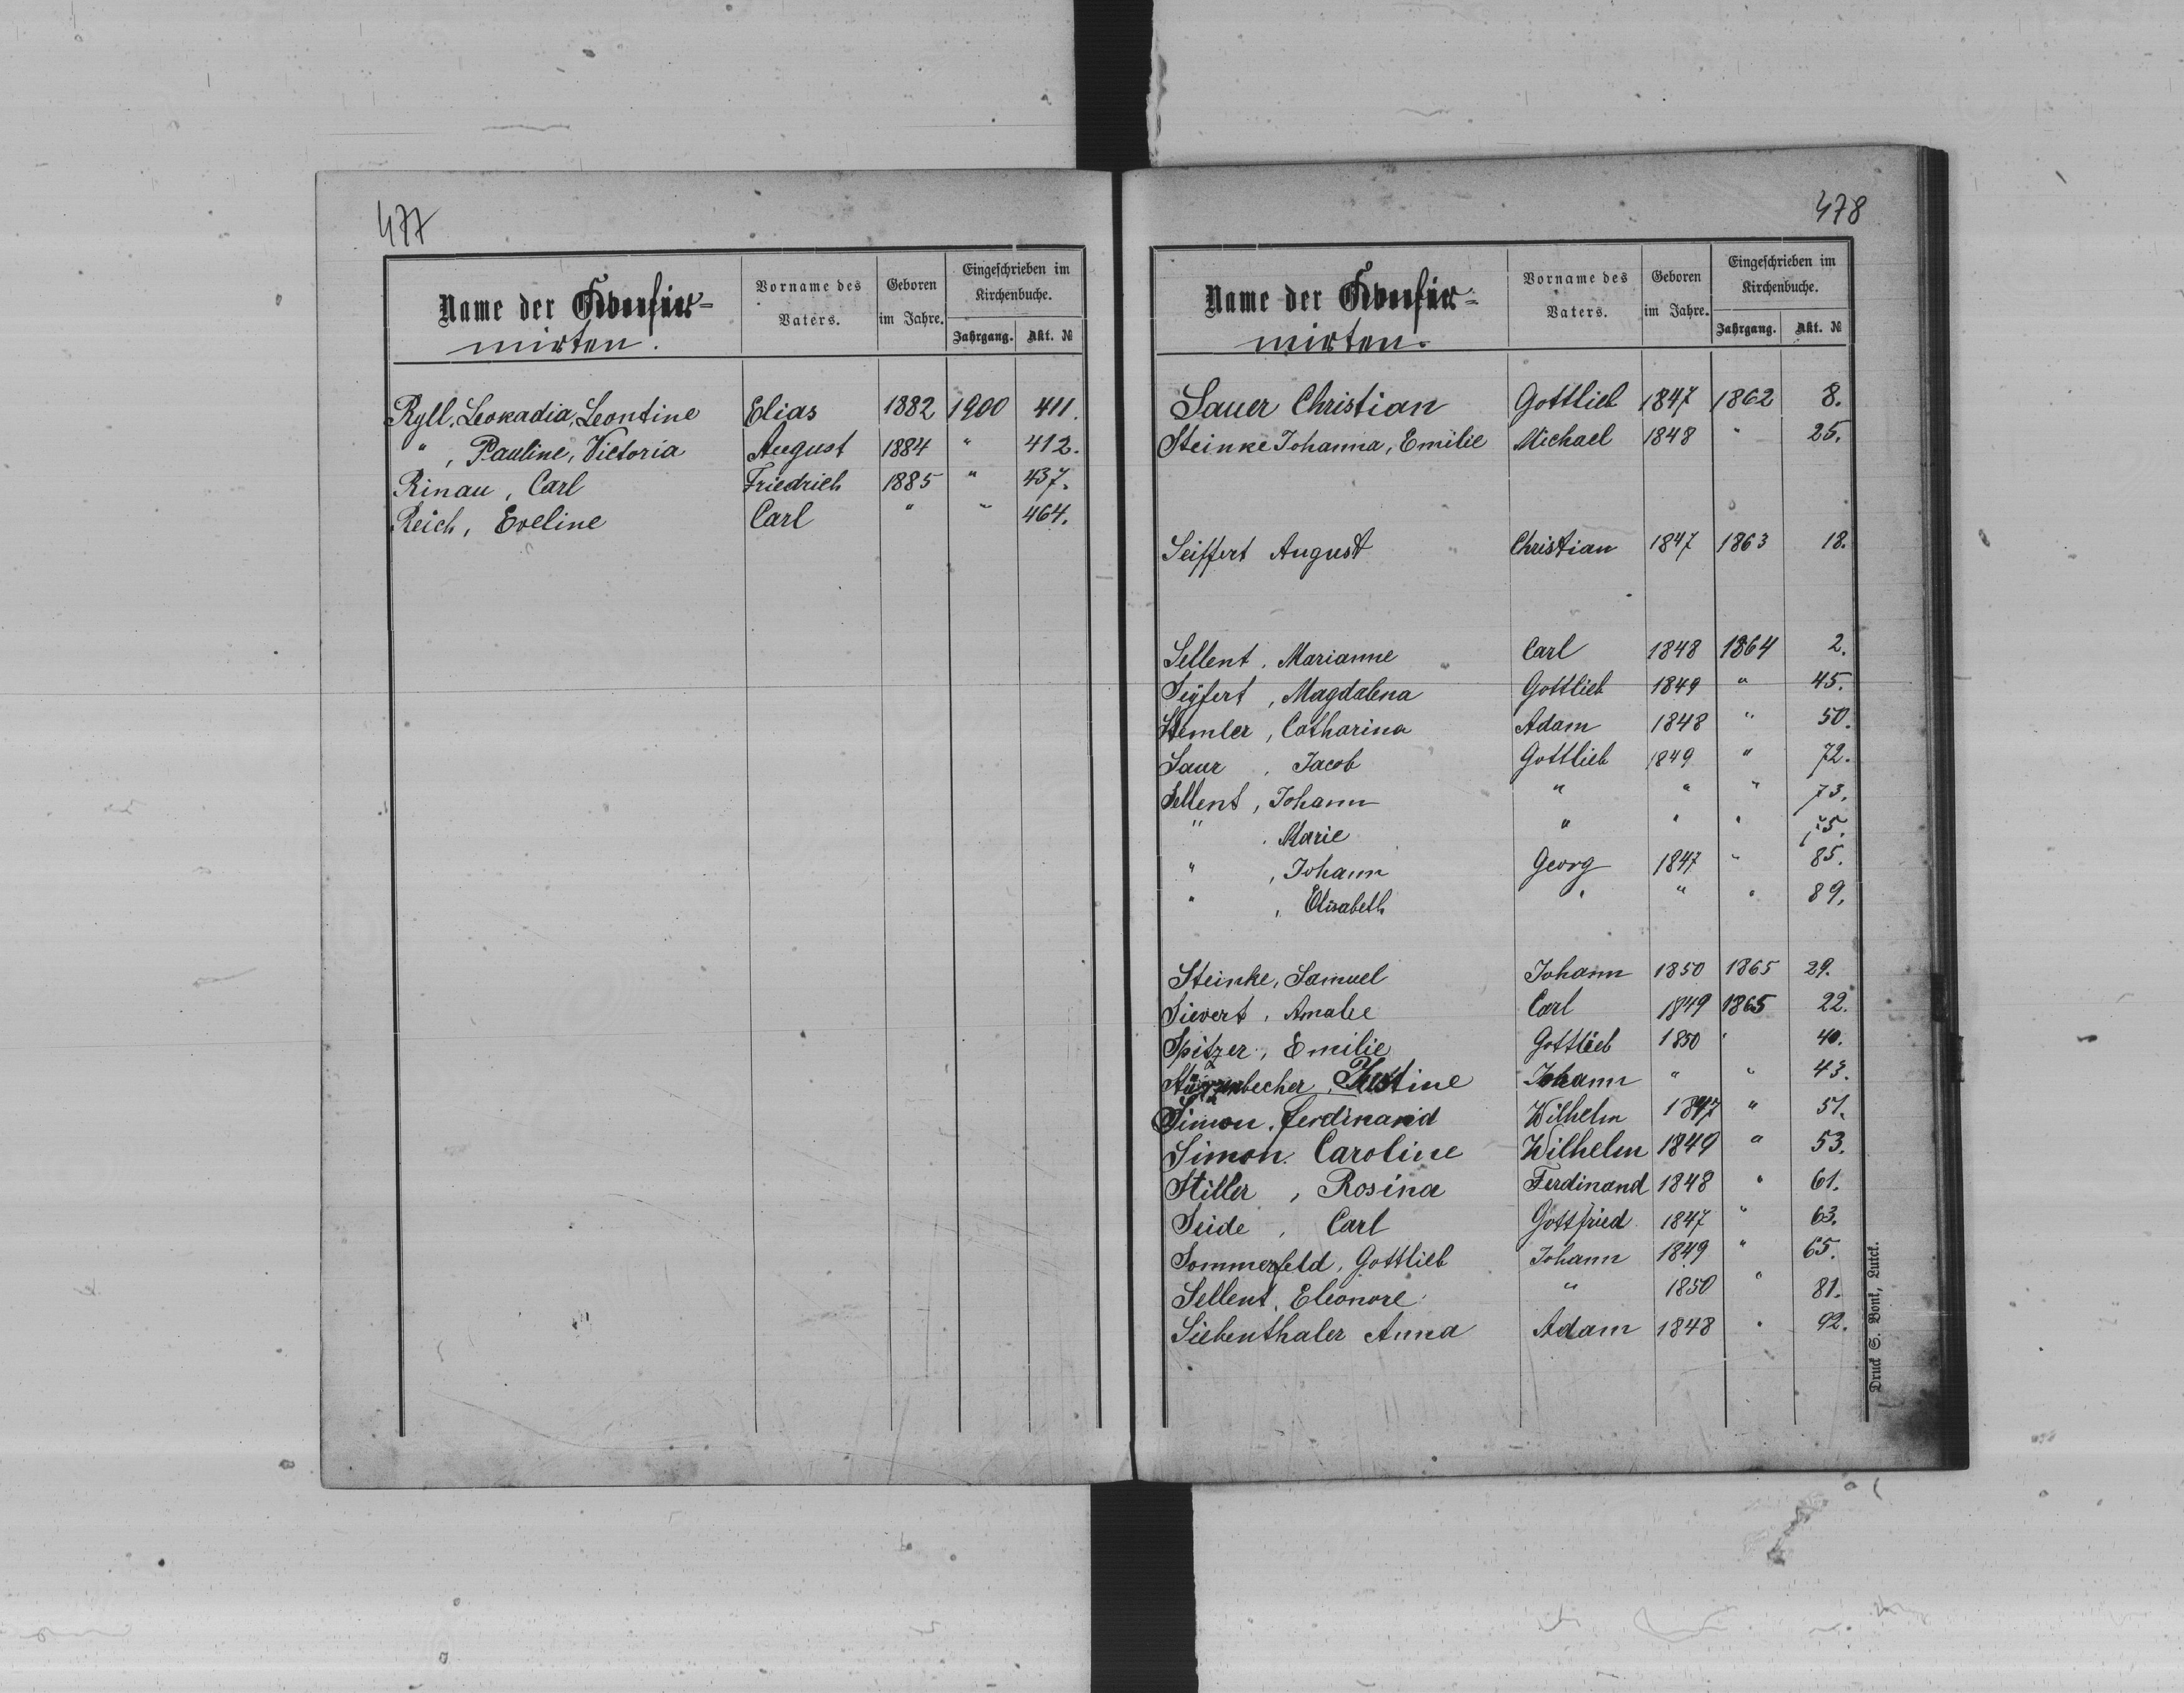 477
Name der Confir-
mirten.
Vorname des
Vaters.
Geboren
im Jahre.
Eingeschrieben im
Kirchenbuche.
Jahrgang. Akt. №
Ryll, Leokadia, Leontine Elias 1882 1900 411.
" , Pauline, Victoria August 1884 " 412.
Rinau, Carl Friedrich 1885 " 437.
Reich, Eveline Carl " " 464.
478
Name der Confir-
mirten.
Vorname des
Vaters.
Geboren
im Jahre.
Eingeschrieben im
Kirchenbuche.
Jahrgang. Akt. №
Sauer Christian Gottlieb 1847 1862 8.
Steinke Johanna, Emilie Michael 1848 " 25.
Seiffert August Christian 1847 1863 18.
Sellent, Marianne Carl 1848 1864 2.
Seyfert, Magdalena Gottlieb 1849 " 45.
Stemler, Catharina Adam 1848 " 50.
Saur, Jacob Gottlieb 1849 " 72.
Sellent, Johann " " " 73.
" , Marie " " " 75.
" , Johann Georg 1847 " 85.
" , Elisabeth " " " 89.
Steinke, Samuel Johann 1850 1865 29.
Sievert, Amalie Carl 1849 1865 22.
Spitzer, Emilie Gottlieb 1850 " 40.
Justine Johann " " 43.
Simon, Ferdinand Wilhelm 1847 " 51.
Simon Caroline Wilhelm 1849 " 53.
Stiller, Rosina Ferdinand 1848 " 61.
Seide, Carl Gottfried 1847 " 63.
Sommerfeld, Gottlieb Johann 1849 " 65.
Sellent, Eleonore " 1850 " 81.
Siebenthaler Anna Adam 1848 " 92.
Druck S. Bonk, Luck.